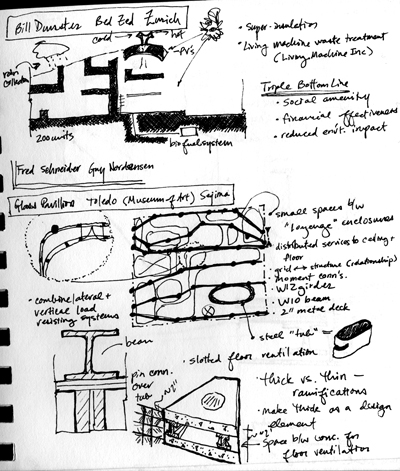 Bill Dunster Bed Zed Zurich
cold
hot
PV's
rain
200 units
biofuel system
• Super-insulation
• Living machine waste treatment
(Living Machine Inc)
Triple Bottom Line
• social amenity
• financial effectiveness
• reduced envt. impact
Fred Schneider Guy Nordensen
Glass Pavilion Toledo (Museum of Art) Sejima
• small spaces b/w
"language" enclosures
distributed services to ceiling +
floor
grid ↔ structure (relationship)
moment conn's.
W12 girder
W10 beam
2" metal deck
• combine lateral +
vertical load
resisting systems
steel "tub" =
• slotted floor ventilation
beam
pin conn.
over
tub
• thick vs. thin –
ramifications
• make thick as a design
element
space b/w conc. for
floor ventilation